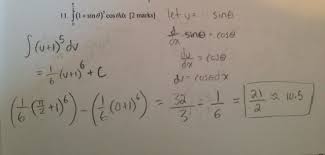 11. ∫(1 + sinθ)⁵ cosθdx [2 marks]
let u = sinθ
d/dx sinθ = cosθ
du/dx = cosθ
du = cosθdx
∫(u+1)⁵ du
= 1/6 (u+1)⁶ + C
(1/6 (π/2 + 1)⁶) - (1/6 (0+1)⁶) = 32/3 - 1/6 = 21/2 ≈ 10.5